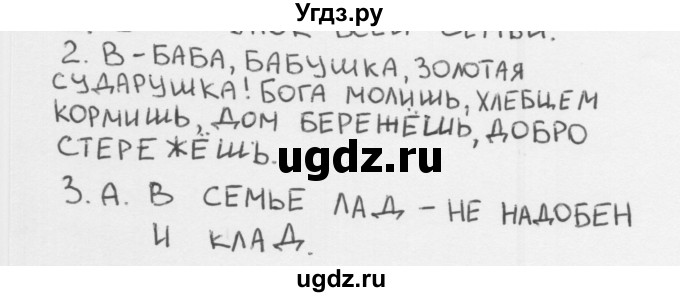 Угдз.ру
2. В - БАБА, БАБУШКА, ЗОЛОТАЯ
СУДАРУШКА! БОГА МОЛИШЬ, ХЛЕБЦЕМ
КОРМИШЬ, ДОМ БЕРЕЖЁШЬ, ДОБРО
СТЕРЕЖЁШЬ.
ugdz.ru
3. А. В СЕМЬЕ ЛАД - НЕ НАДОБЕН
И КЛАД.
ugdz.ru